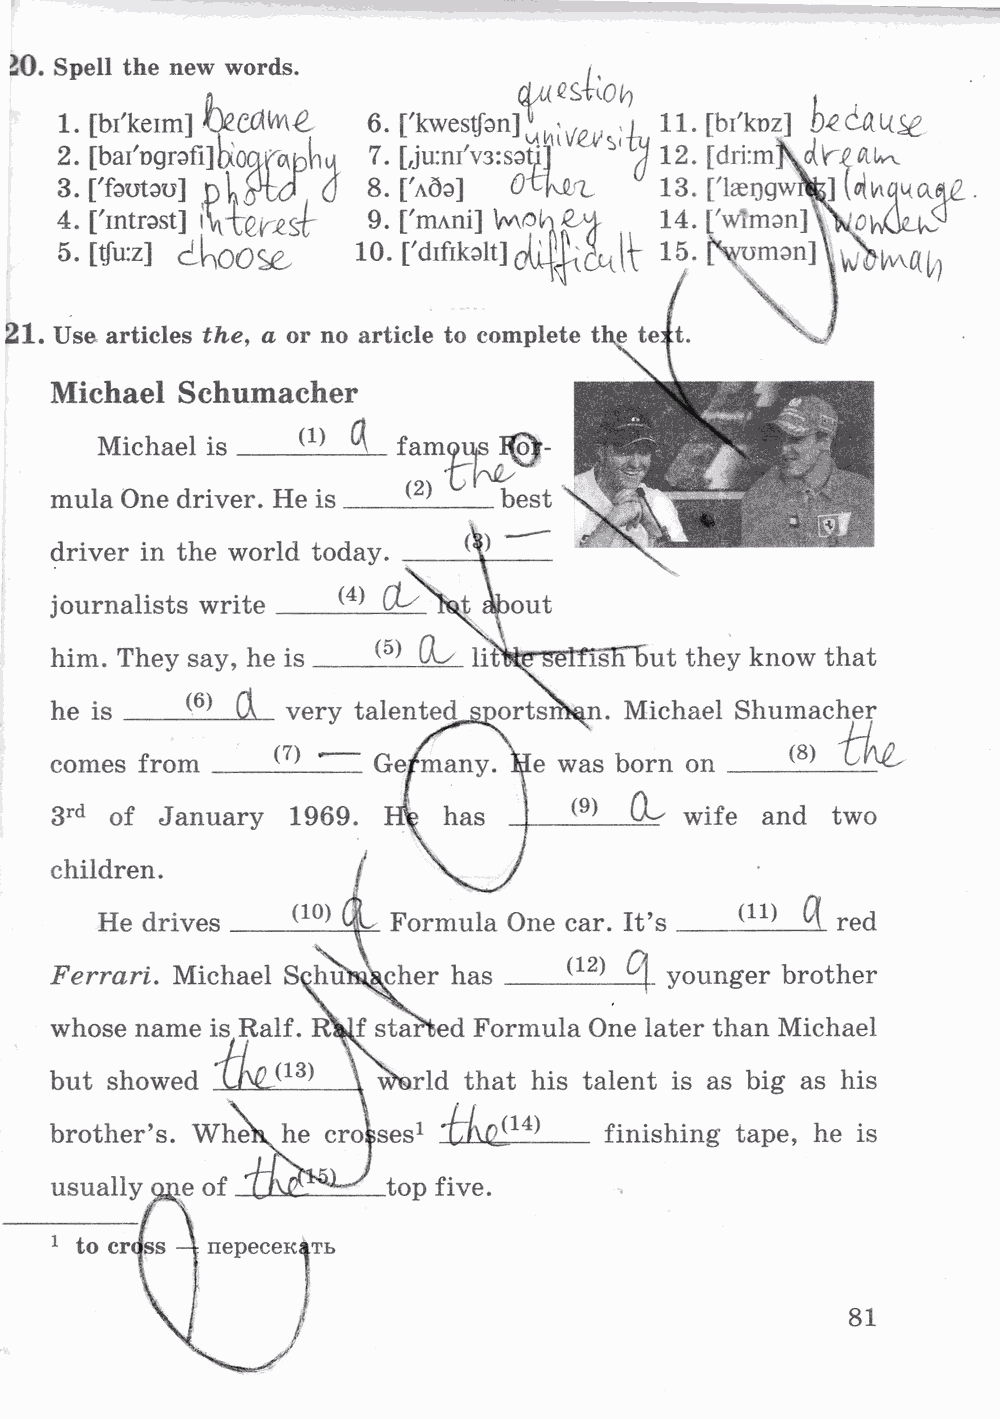 20. Spell the new words.
question
1. [bɪ'keɪm] became 6. ['kwestʃən] 11. [bɪ'kɒz] because
2. [baɪ'ɒɡrəfi] biography 7. [ˌjuːnɪ'vɜːsəti] university 12. [driːm] dream
3. ['fəʊtəʊ] photo 8. ['ʌðə] other 13. ['læŋɡwɪdʒ] language.
4. ['ɪntrəst] interest 9. ['mʌni] money 14. ['wɪmən] women
5. [tʃuːz] choose 10. ['dɪfɪkəlt] difficult 15. ['wʊmən] woman
21. Use articles the, a or no article to complete the text.
Michael Schumacher
Michael is (1) a famous For-
mula One driver. He is (2) the best
driver in the world today. (3) —
journalists write (4) a lot about
him. They say, he is (5) a little selfish but they know that
he is (6) a very talented sportsman. Michael Shumacher
comes from (7) — Germany. He was born on (8) the
3rd of January 1969. He has (9) a wife and two
children.
He drives (10) a Formula One car. It's (11) a red
Ferrari. Michael Schumacher has (12) a younger brother
whose name is Ralf. Ralf started Formula One later than Michael
but showed the (13) world that his talent is as big as his
brother's. When he crosses¹ the (14) finishing tape, he is
usually one of the (15) top five.
¹ to cross — пересекать
81